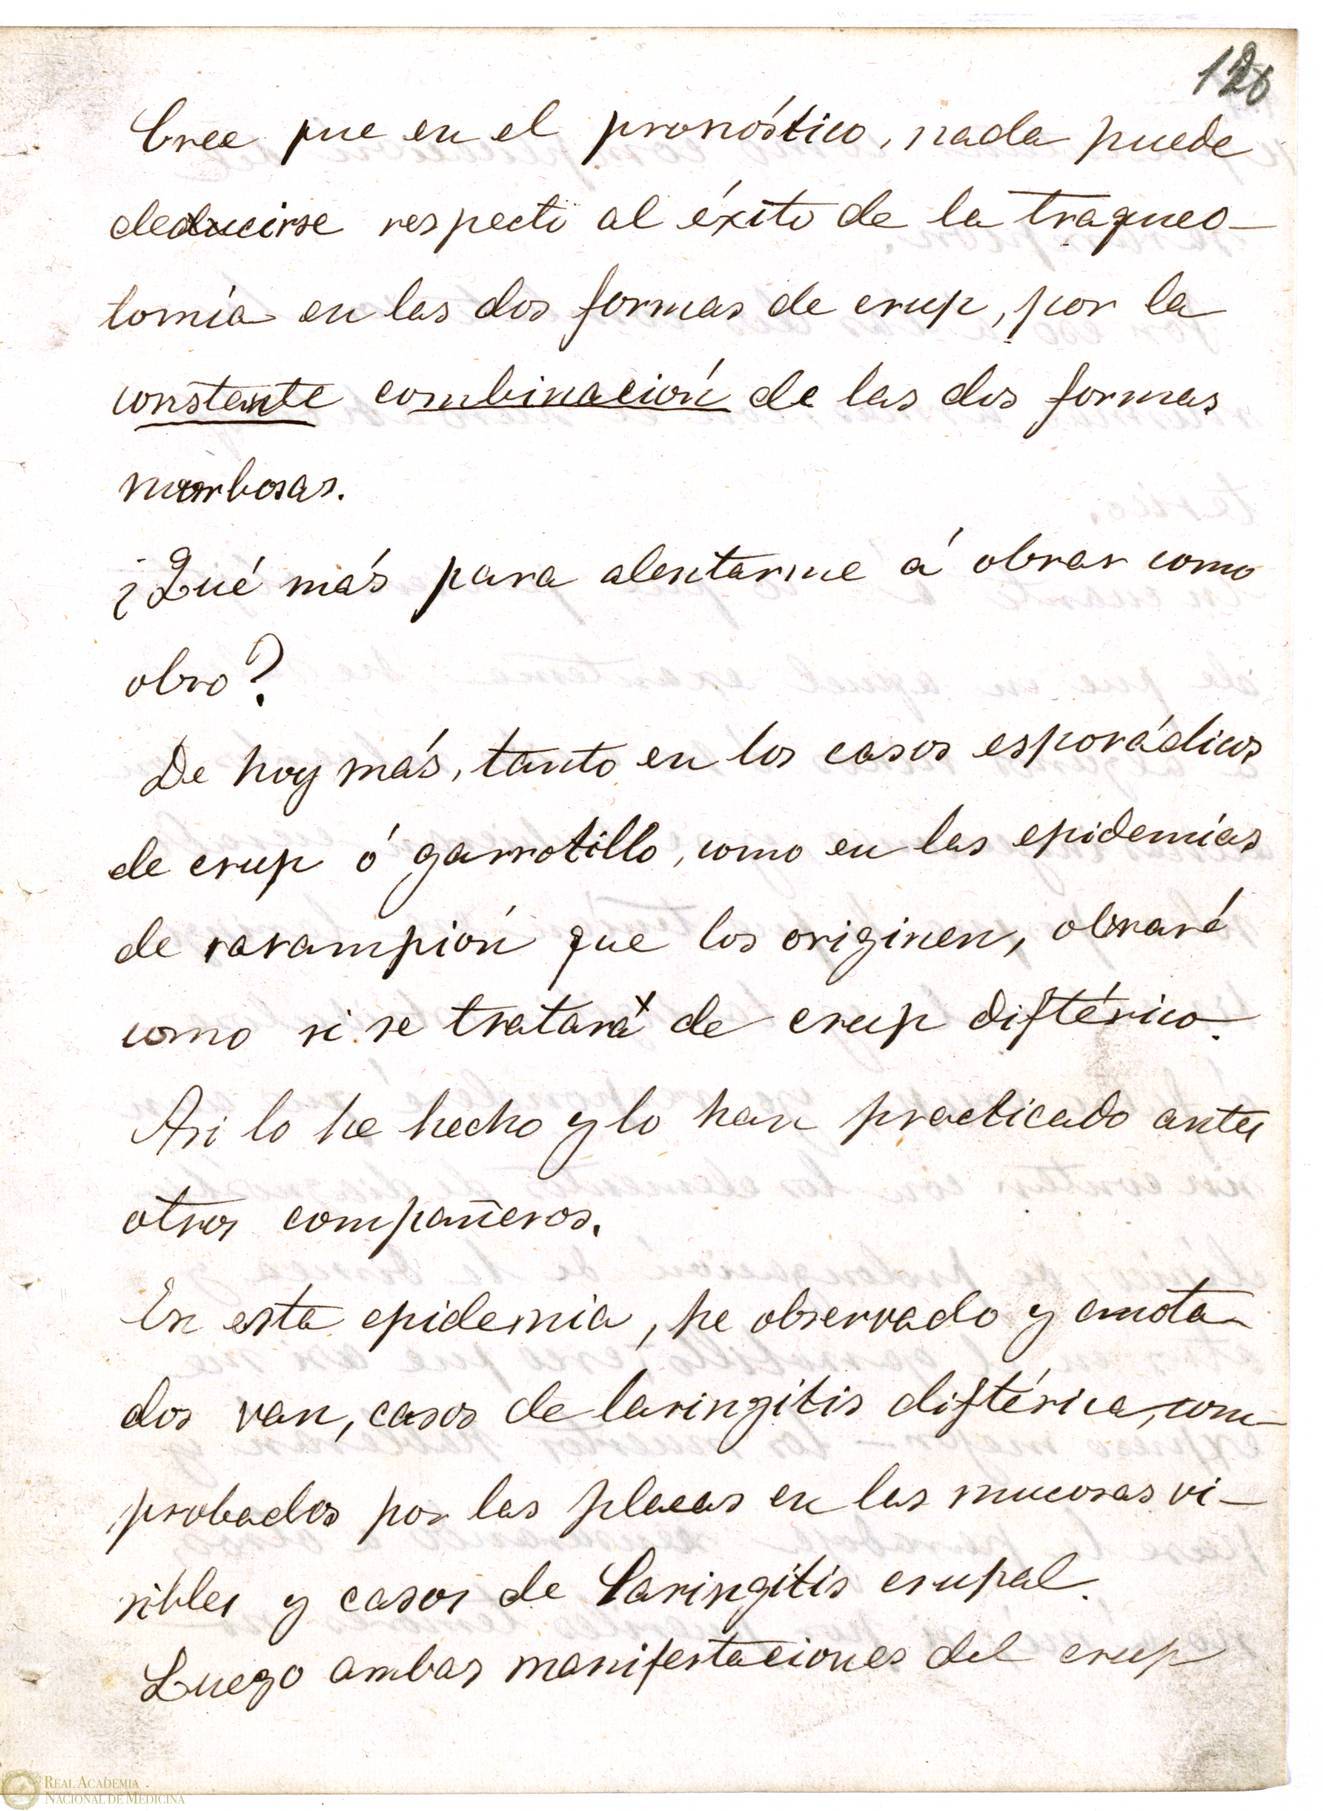 126
Cree que en el pronóstico, nada puede
deducirse respecto al éxito de la traqueo-
tomía en las dos formas de crup, por la
constante combinación de las dos formas
morbosas.
¿Qué más para alentarme á obrar como
obro?
De hoy más, tanto en los casos esporádicos
de crup ó garrotillo, como en las epidemias
de sarampión que los originen, obraré
como si se tratará de crup diftérico.
Asi lo he hecho y lo han practicado antes
otros compañeros.
En esta epidemia, he observado y anota-
dos van, casos de laringitis diftérica, com-
probados por las placas en las mucosas vi-
sibles y casos de Laringitis crupal.
Luego ambas manifestaciones del crup
REAL ACADEMIA
NACIONAL DE MEDICINA